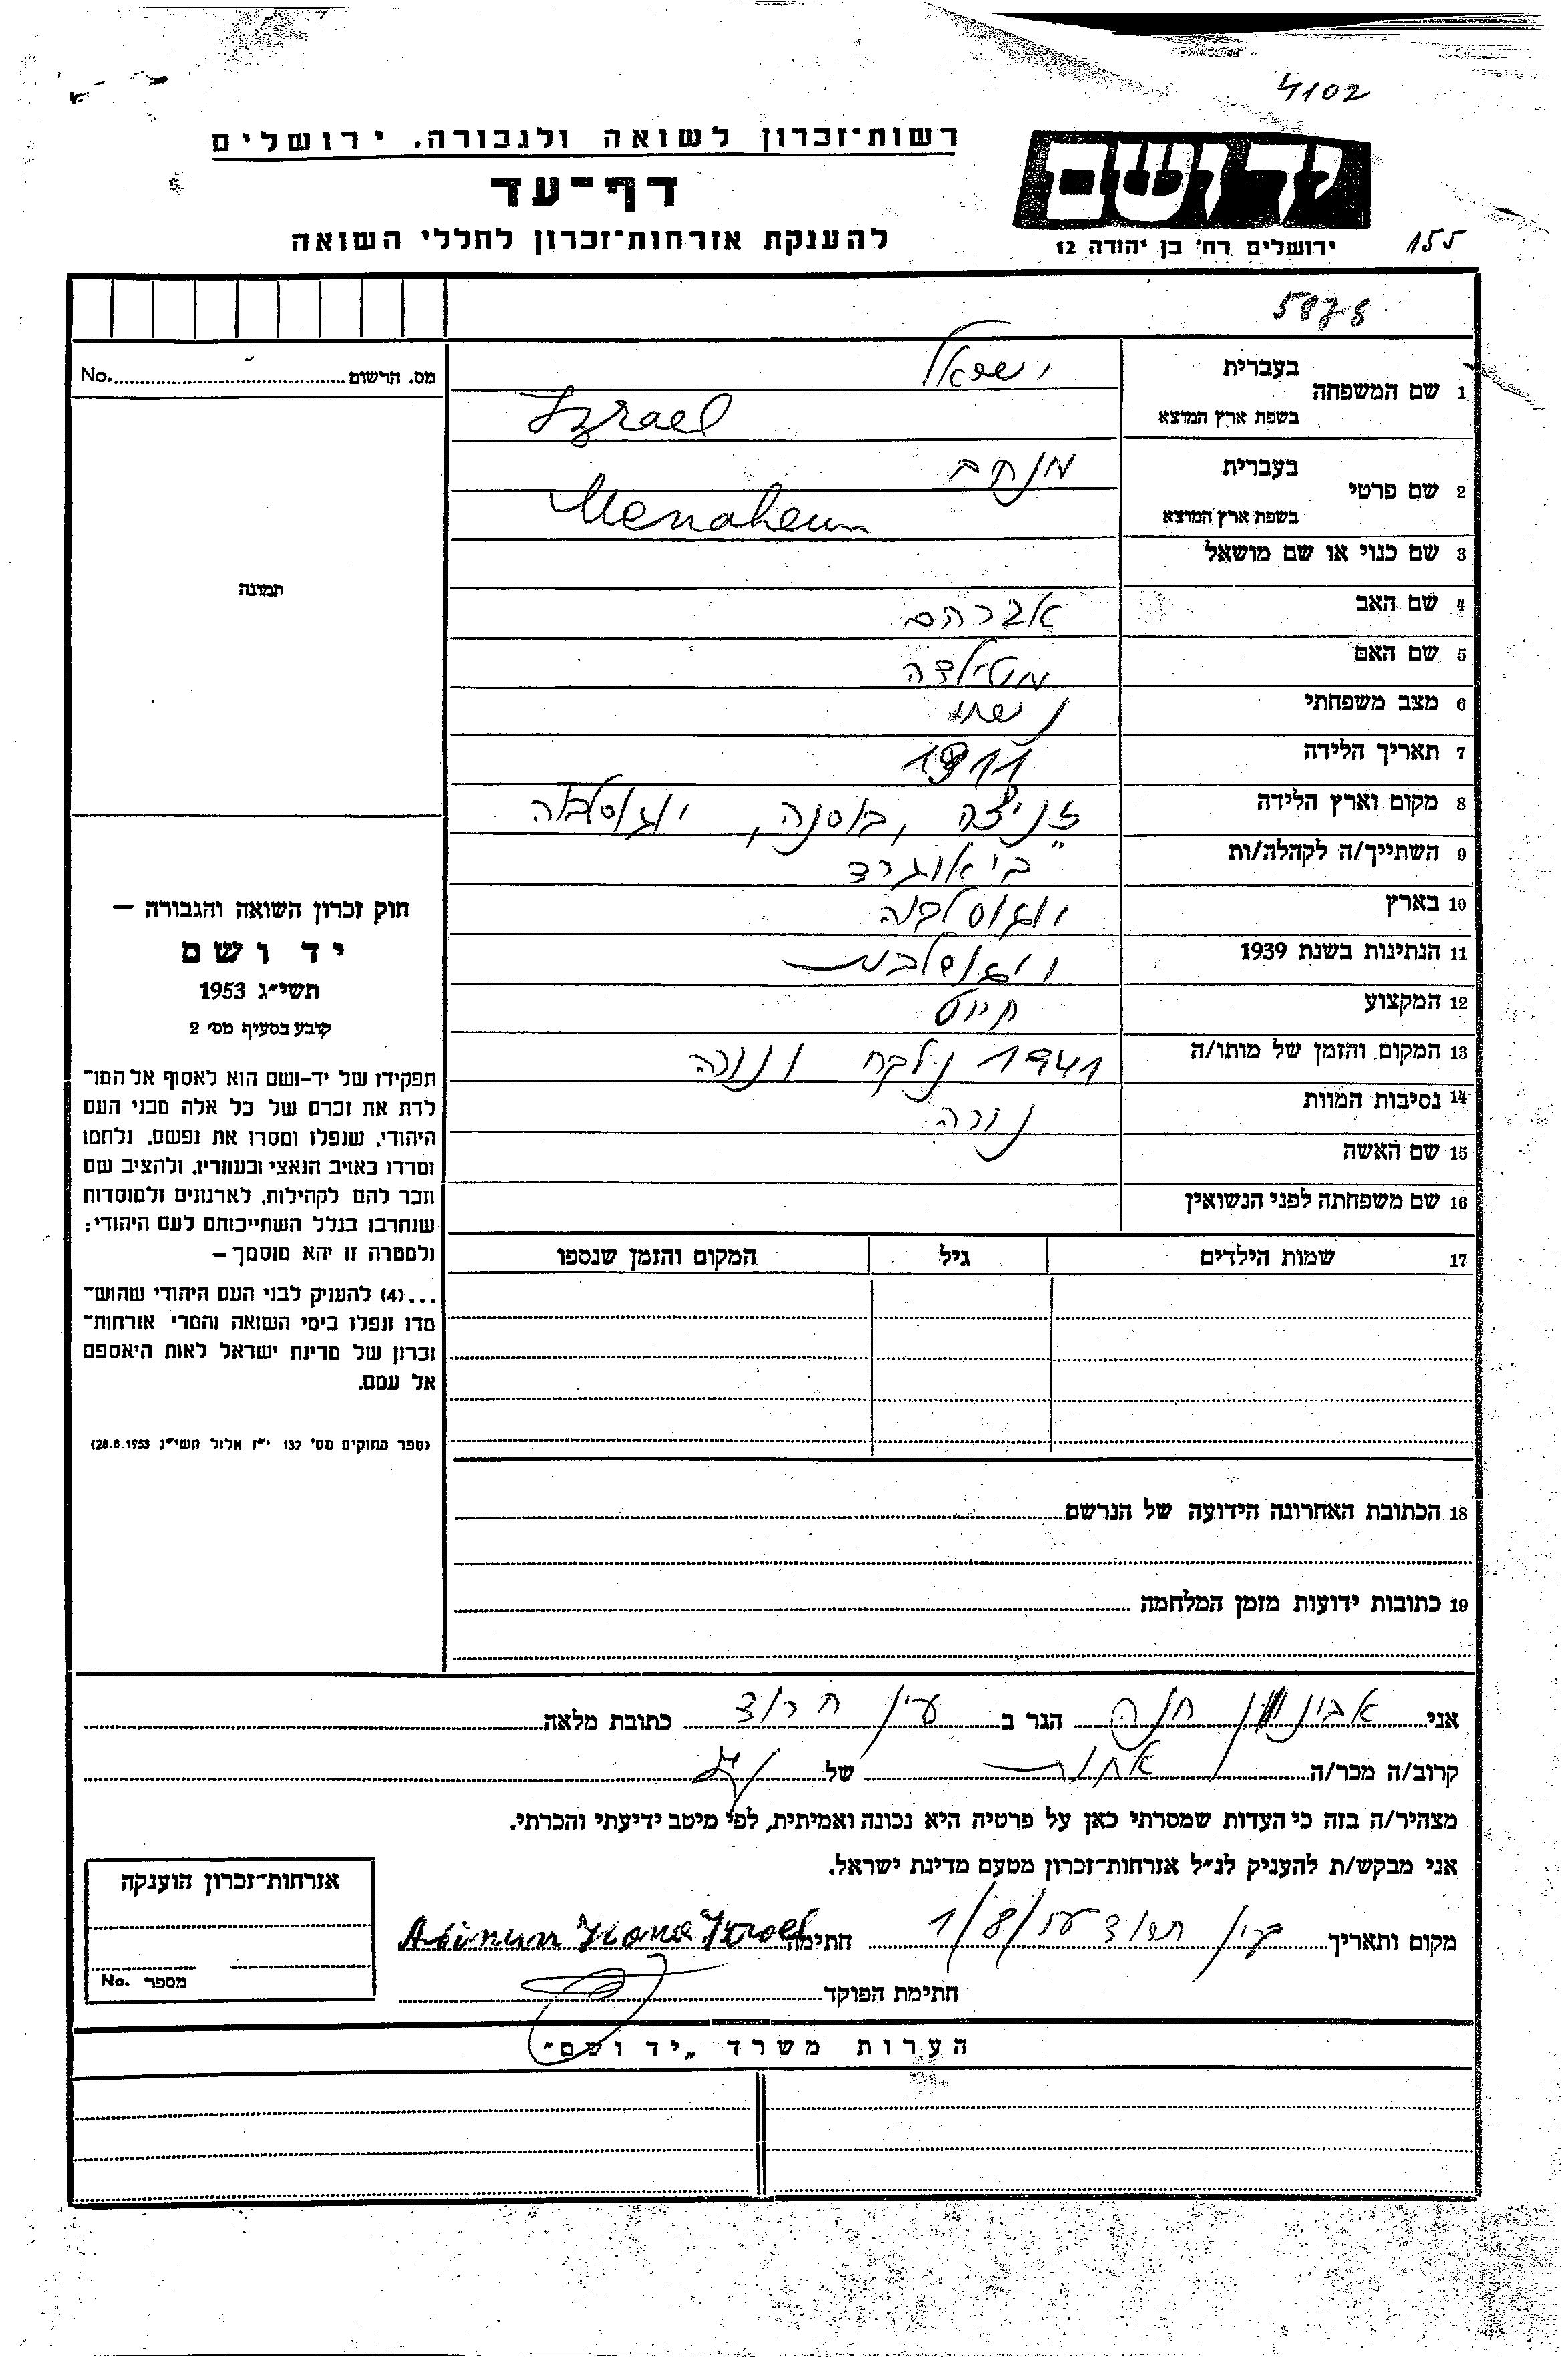 4102
רשות־זכרון לשואה ולגבורה, ירושלים
יד ושם
דף־עד
להענקת אזרחות־זכרון לחללי השואה
ירושלים רח' בן יהודה 12
155
5878
No. מס. הרשום
1 שם המשפחה בעברית ישראל
בשפת ארץ המוצא Izrael
2 שם פרטי בעברית מנחם
בשפת ארץ המוצא Menahem
3 שם כנוי או שם מושאל
תמונה
4 שם האב אברהם
5 שם האם מטילדה
6 מצב משפחתי נשוי
7 תאריך הלידה 1911
8 מקום וארץ הלידה זניצה, בוסנה, יוגוסלביה
9 השתייך/ה לקהלה/ות ביאוגרד
10 בארץ יוגוסלביה
11 הנתינות בשנת 1939 יוגוסלבית
12 המקצוע חייט
13 המקום והזמן של מותו/ה 1941 נלקח ונורה
14 נסיבות המוות נורה
15 שם האשה
16 שם משפחתה לפני הנשואין
17 שמות הילדים גיל המקום והזמן שנספו
חוק זכרון השואה והגבורה —
יד ושם
תשי״ג 1953
קובע בסעיף מס׳ 2
תפקידו של יד-ושם הוא לאסוף אל המו־
לדת את זכרם של כל אלה מבני העם
היהודי, שנפלו ומסרו את נפשם, נלחמו
ומרדו באויב הנאצי ובעוזריו, ולהציב שם
וזכר להם לקהילות, לארגונים ולמוסדות
שנחרבו בגלל השתייכותם לעם היהודי;
ולמטרה זו יהא מוסמך —
...(4) להעניק לבני העם היהודי שהוש־
מדו ונפלו בימי השואה והמרי אזרחות־
זכרון של מדינת ישראל לאות היאספם
אל עמם.
(ספר החוקים מס׳ 132 י״ז אלול תשי״ג 28.8.1953)
18 הכתובת האחרונה הידועה של הנרשם
19 כתובות ידועות מזמן המלחמה
אני חנה הגר ב עין חרוד כתובת מלאה
קרוב/ה מכר/ה אחות של
מצהיר/ה בזה כי העדות שמסרתי כאן על פרטיה היא נכונה ואמיתית, לפי מיטב ידיעתי והכרתי.
אני מבקש/ת להעניק לנ״ל אזרחות־זכרון מטעם מדינת ישראל.
מקום ותאריך עין חרוד 1/8/57 חתימה Abinun Hana Izrael
חתימת הפוקד
אזרחות־זכרון הוענקה
No. מספר
הערות משרד „יד ושם״